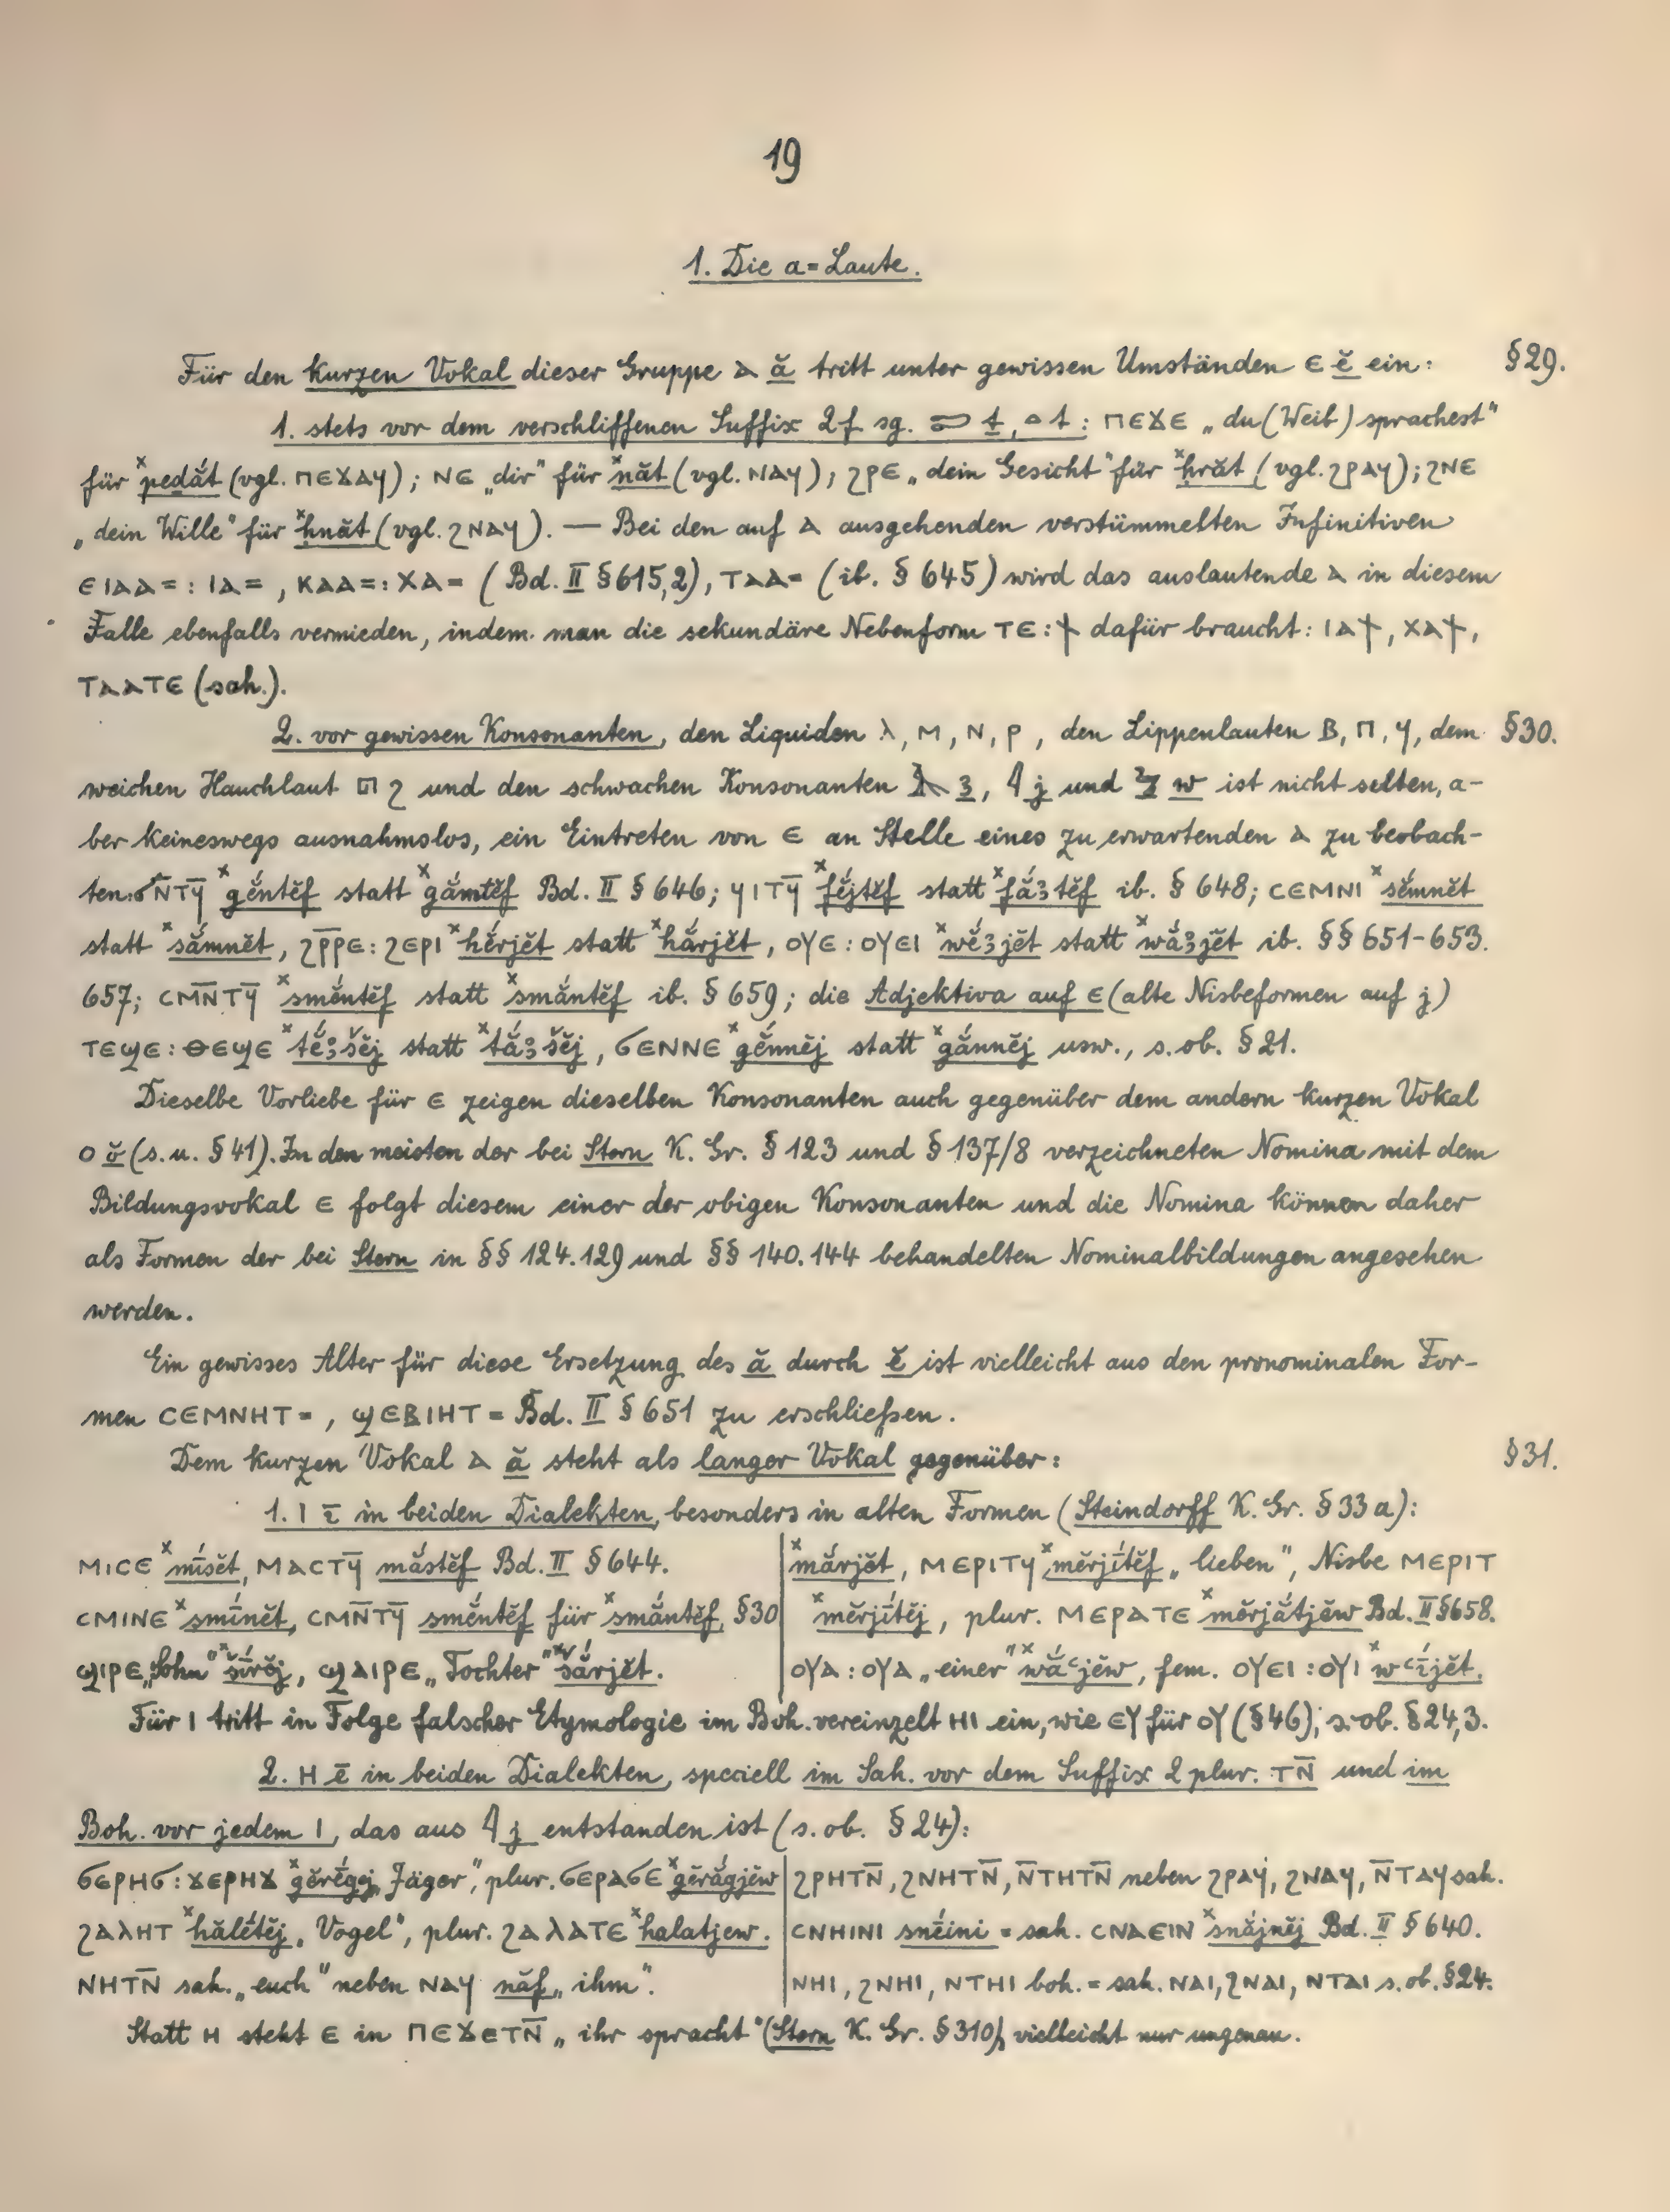 19
1. Die a=Laute.
Für den kurzen Vokal dieser Gruppe ⲁ ă tritt unter gewissen Umständen ⲉ ĕ ein: §29.
1. stets vor dem verschliffenen Suffix 2f sg. 𓍿 ṯ, 𓏏 t: ⲡⲉϫⲉ „du (Weib) sprachest"
für ˣpedắt (vgl. ⲡⲉϫⲁϥ); ⲛⲉ „dir" für ˣnăt (vgl. ⲛⲁϥ); ϩⲣⲉ „dein Gesicht" für ˣḥrăt (vgl. ϩⲣⲁϥ); ϩⲛⲉ
„dein Wille" für ˣḥnăt (vgl. ϩⲛⲁϥ). — Bei den auf ⲁ ausgehenden verstümmelten Infinitiven
ⲉⲓⲁⲁ=: ⲓⲁ=, ⲕⲁⲁ=: ⲭⲁ= (Bd. II §615,2), ⲧⲁⲁ= (ib. §645) wird das auslautende ⲁ in diesem
Falle ebenfalls vermieden, indem man die sekundäre Nebenform ⲧⲉ: ϯ dafür braucht: ⲓⲁϯ, ⲭⲁϯ,
ⲧⲁⲁⲧⲉ (sah.).
2. vor gewissen Konsonanten, den Liquiden ⲗ, ⲙ, ⲛ, ⲣ, den Lippenlauten ⲃ, ⲡ, ϥ, dem §30.
weichen Hauchlaut 𓉔 ϩ und den schwachen Konsonanten 𓄿 ꜣ, 𓇋 j und 𓅱 w ist nicht selten, a-
ber keineswegs ausnahmslos, ein Eintreten von ⲉ an Stelle eines zu erwartenden ⲁ zu beobach-
ten: ϭⲛ̄ⲧϥ̄ ˣgĕ́ntĕf statt ˣgắmtĕf Bd. II §646; ϥⲓⲧϥ̄ ˣfĕ́jtĕf statt ˣfắꜣtĕf ib. §648; ⲥⲉⲙⲛⲓ ˣsĕ́mnĕt
statt ˣsắmnĕt, ϩⲣ̄ⲣⲉ: ϩⲉⲣⲓ ˣhĕ́rjĕt statt ˣhắrjĕt, ⲟⲩⲉ: ⲟⲩⲉⲓ ˣwĕ́ꜣjĕt statt ˣwắꜣjĕt ib. §§651-653.
657; ⲥⲙⲛ̄ⲧϥ̄ ˣsmĕ́ntĕf statt ˣsmắntĕf ib. §659; die Adjektiva auf ⲉ (alte Nisbeformen auf j)
ⲧⲉϣⲉ: ⲑⲉϣⲉ ˣtĕ́ꜣšĕj statt ˣtắꜣšĕj, ϭⲉⲛⲛⲉ ˣgĕ́nnĕj statt ˣgắnnĕj usw., s. ob. §21.
Dieselbe Vorliebe für ⲉ zeigen dieselben Konsonanten auch gegenüber dem andern kurzen Vokal
ⲟ ŏ (s. u. §41). In den meisten der bei Stern K. Gr. §123 und §137/8 verzeichneten Nomina mit dem
Bildungsvokal ⲉ folgt diesem einer der obigen Konsonanten und die Nomina können daher
als Formen der bei Stern in §§124.129 und §§140.144 behandelten Nominalbildungen angesehen
werden.
Ein gewisses Alter für diese Ersetzung des ă durch ĕ ist vielleicht aus den pronominalen For-
men ⲥⲉⲙⲛⲏⲧ=, ϣⲉⲃⲓⲏⲧ= Bd. II §651 zu erschließen.
Dem kurzen Vokal ⲁ ă steht als langer Vokal gegenüber: §31.
1. ⲓ ī in beiden Dialekten, besonders in alten Formen (Steindorff K. Gr. §33a):
ⲙⲓⲥⲉ ˣmī́sĕt, ⲙⲁⲥⲧϥ̄ mắstĕf Bd. II §644.
ⲥⲙⲓⲛⲉ ˣsmī́nĕt, ⲥⲙⲛ̄ⲧϥ̄ smĕ́ntĕf für ˣsmắntĕf, §30
ϣⲓⲣⲉ „Sohn" ˣšī́rĕj, ϣⲁⲓⲣⲉ „Tochter" ˣšắrjĕt.
ˣmắrjĕt, ⲙⲉⲣⲓⲧϥ ˣmĕrjī́tĕf „lieben", Nisbe ⲙⲉⲣⲓⲧ
ˣmĕrjī́tĕj, plur. ⲙⲉⲣⲁⲧⲉ ˣmĕrjắtjĕw Bd. II §658.
ⲟⲩⲁ: ⲟⲩⲁ „einer" ˣwắꜥjĕw, fem. ⲟⲩⲉⲓ: ⲟⲩⲓ ˣwꜥī́jĕt.
Für ⲓ tritt in Folge falscher Etymologie im Boh. vereinzelt ⲏⲓ ein, wie ⲉⲩ für ⲟⲩ (§46), s. ob. §24,3.
2. ⲏ ē in beiden Dialekten, speciell im Sah. vor dem Suffix 2 plur. ⲧⲛ̄ und im
Boh. vor jedem ⲓ, das aus 𓇋 j entstanden ist (s. ob. §24):
ϭⲉⲣⲏϭ: ϫⲉⲣⲏϫ ˣgĕrḗgĕj „Jäger", plur. ϭⲉⲣⲁϭⲉ ˣgĕrắgjĕw
ϩⲁⲗⲏⲧ ˣhălḗtĕj „Vogel", plur. ϩⲁⲗⲁⲧⲉ ˣhalatjew.
ⲛⲏⲧⲛ̄ sah. „euch" neben ⲛⲁϥ năf „ihm".
ϩⲣⲏⲧⲛ̄, ϩⲛⲏⲧⲛ̄, ⲛ̄ⲧⲏⲧⲛ̄ neben ϩⲣⲁϥ, ϩⲛⲁϥ, ⲛ̄ⲧⲁϥ sah.
ⲥⲛⲏⲓⲛⲓ snḗini = sah. ⲥⲛⲁⲉⲓⲛ ˣsnắjnĕj Bd. II §640.
ⲛⲏⲓ, ϩⲛⲏⲓ, ⲛⲧⲏⲓ boh. = sah. ⲛⲁⲓ, ϩⲛⲁⲓ, ⲛⲧⲁⲓ s. ob. §24.
Statt ⲏ steht ⲉ in ⲡⲉϫⲉⲧⲛ̄ „ihr spracht" (Stern K. Gr. §310), vielleicht nur ungenau.